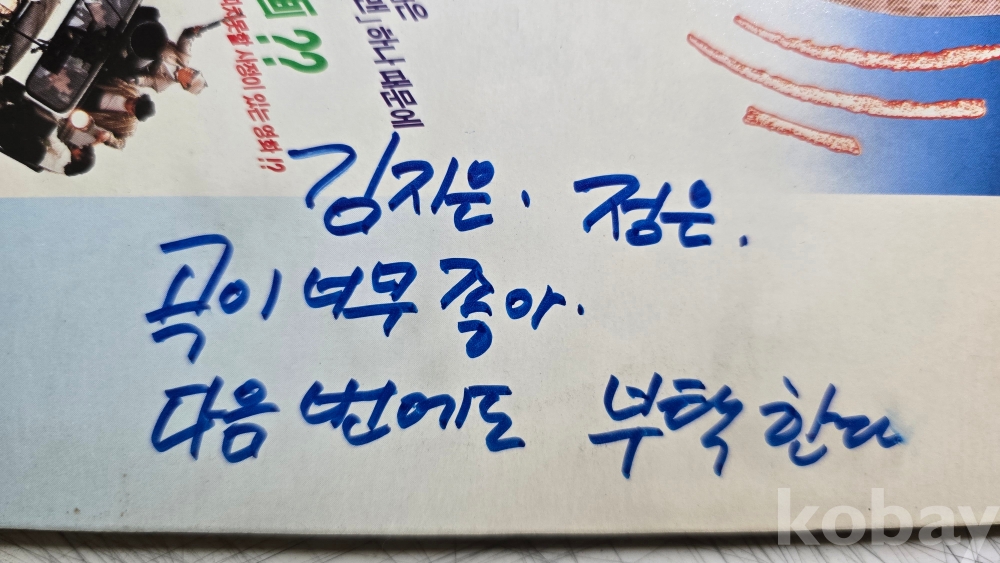 画??
시정이 있는 영화!?
하나 때문에
김지은. 정은.
곡이 너무 좋아.
다음 번에도 부탁한다
kobay